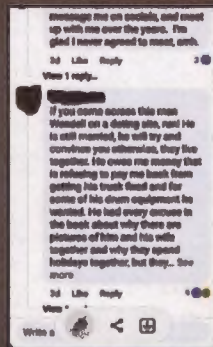 message me on socials, and meet
up with me over the years. I'm
glad I never agreed to meet,
2d Like Reply 3
View 1 reply...
If you come across this man
on a dating site, run! He
is still married, he will try and
convince you otherwise, they live
together. He owes me money that
is refusing to pay me back from
getting his truck fixed and for
some of his drum equipment he
wanted. He had every excuse in
the book about why there are
pictures of him and his wife
together and why they spend
holidays together, but they... See
more
2d Like Reply 4
View
Write a